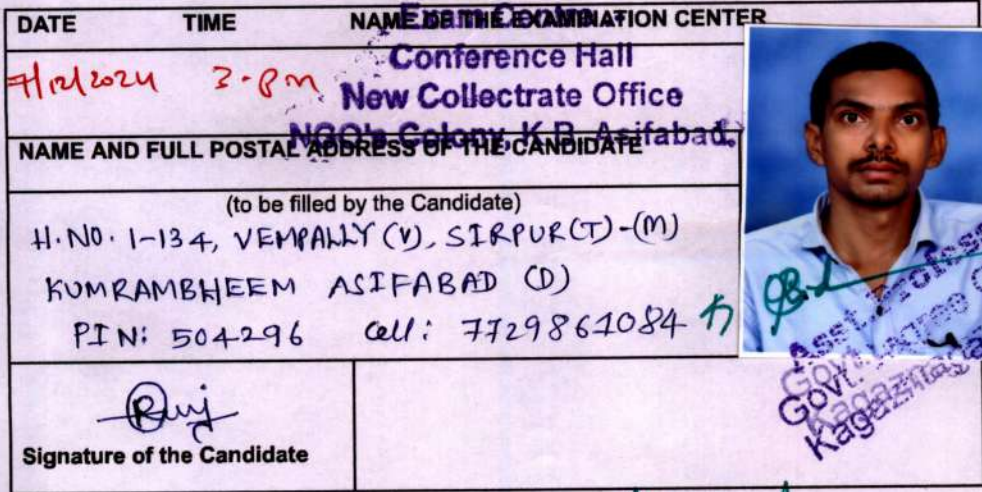 DATE TIME NAME OF THE EXAMINATION CENTER
Exam Centre
7/12/2024 3-pm
Conference Hall
New Collectrate Office
NGO's Colony, K.B. Asifabad.
NAME AND FULL POSTAL ADDRESS OF THE CANDIDATE
(to be filled by the Candidate)
H.NO. 1-134, VEMPALLY (V), SIRPUR(T)-(M)
KUMRAMBHEEM ASIFABAD (D)
PIN: 504296 Cell: 7729861084
Signature of the Candidate
Asst. Profess
Govt. Degree C
Govt.
Kagaznaga